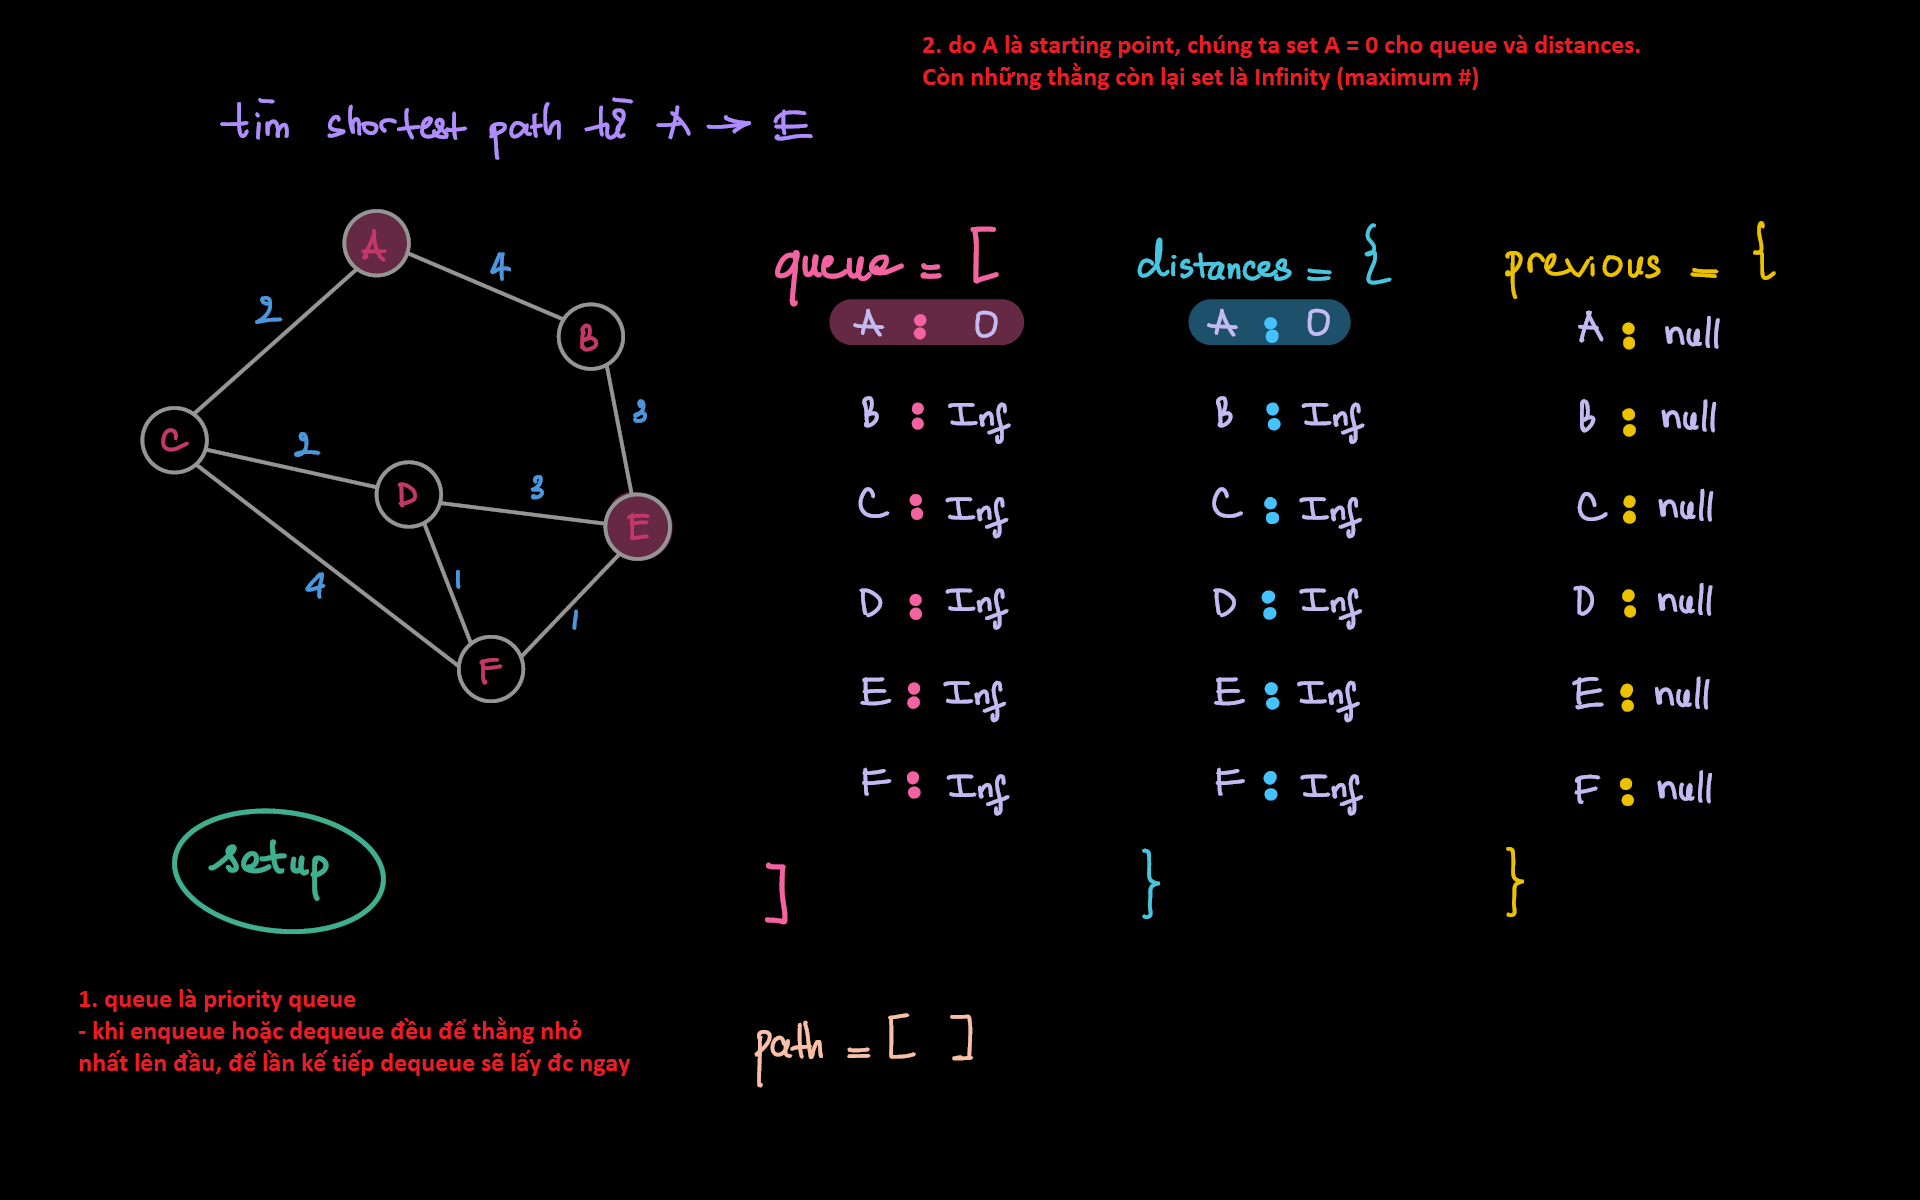 2. do A là starting point, chúng ta set A = 0 cho queue và distances.
Còn những thằng còn lại set là Infinity (maximum #)
tìm shortest path từ A → E
A
4
2
B
3
C
2
D
3
E
4
1
1
F
queue = [
A : 0
B : Inf
C : Inf
D : Inf
E : Inf
F : Inf
]
distances = {
A : 0
B : Inf
C : Inf
D : Inf
E : Inf
F : Inf
}
previous = {
A : null
B : null
C : null
D : null
E : null
F : null
}
setup
1. queue là priority queue
- khi enqueue hoặc dequeue đều để thằng nhỏ
nhất lên đầu, để lần kế tiếp dequeue sẽ lấy đc ngay
path = [ ]